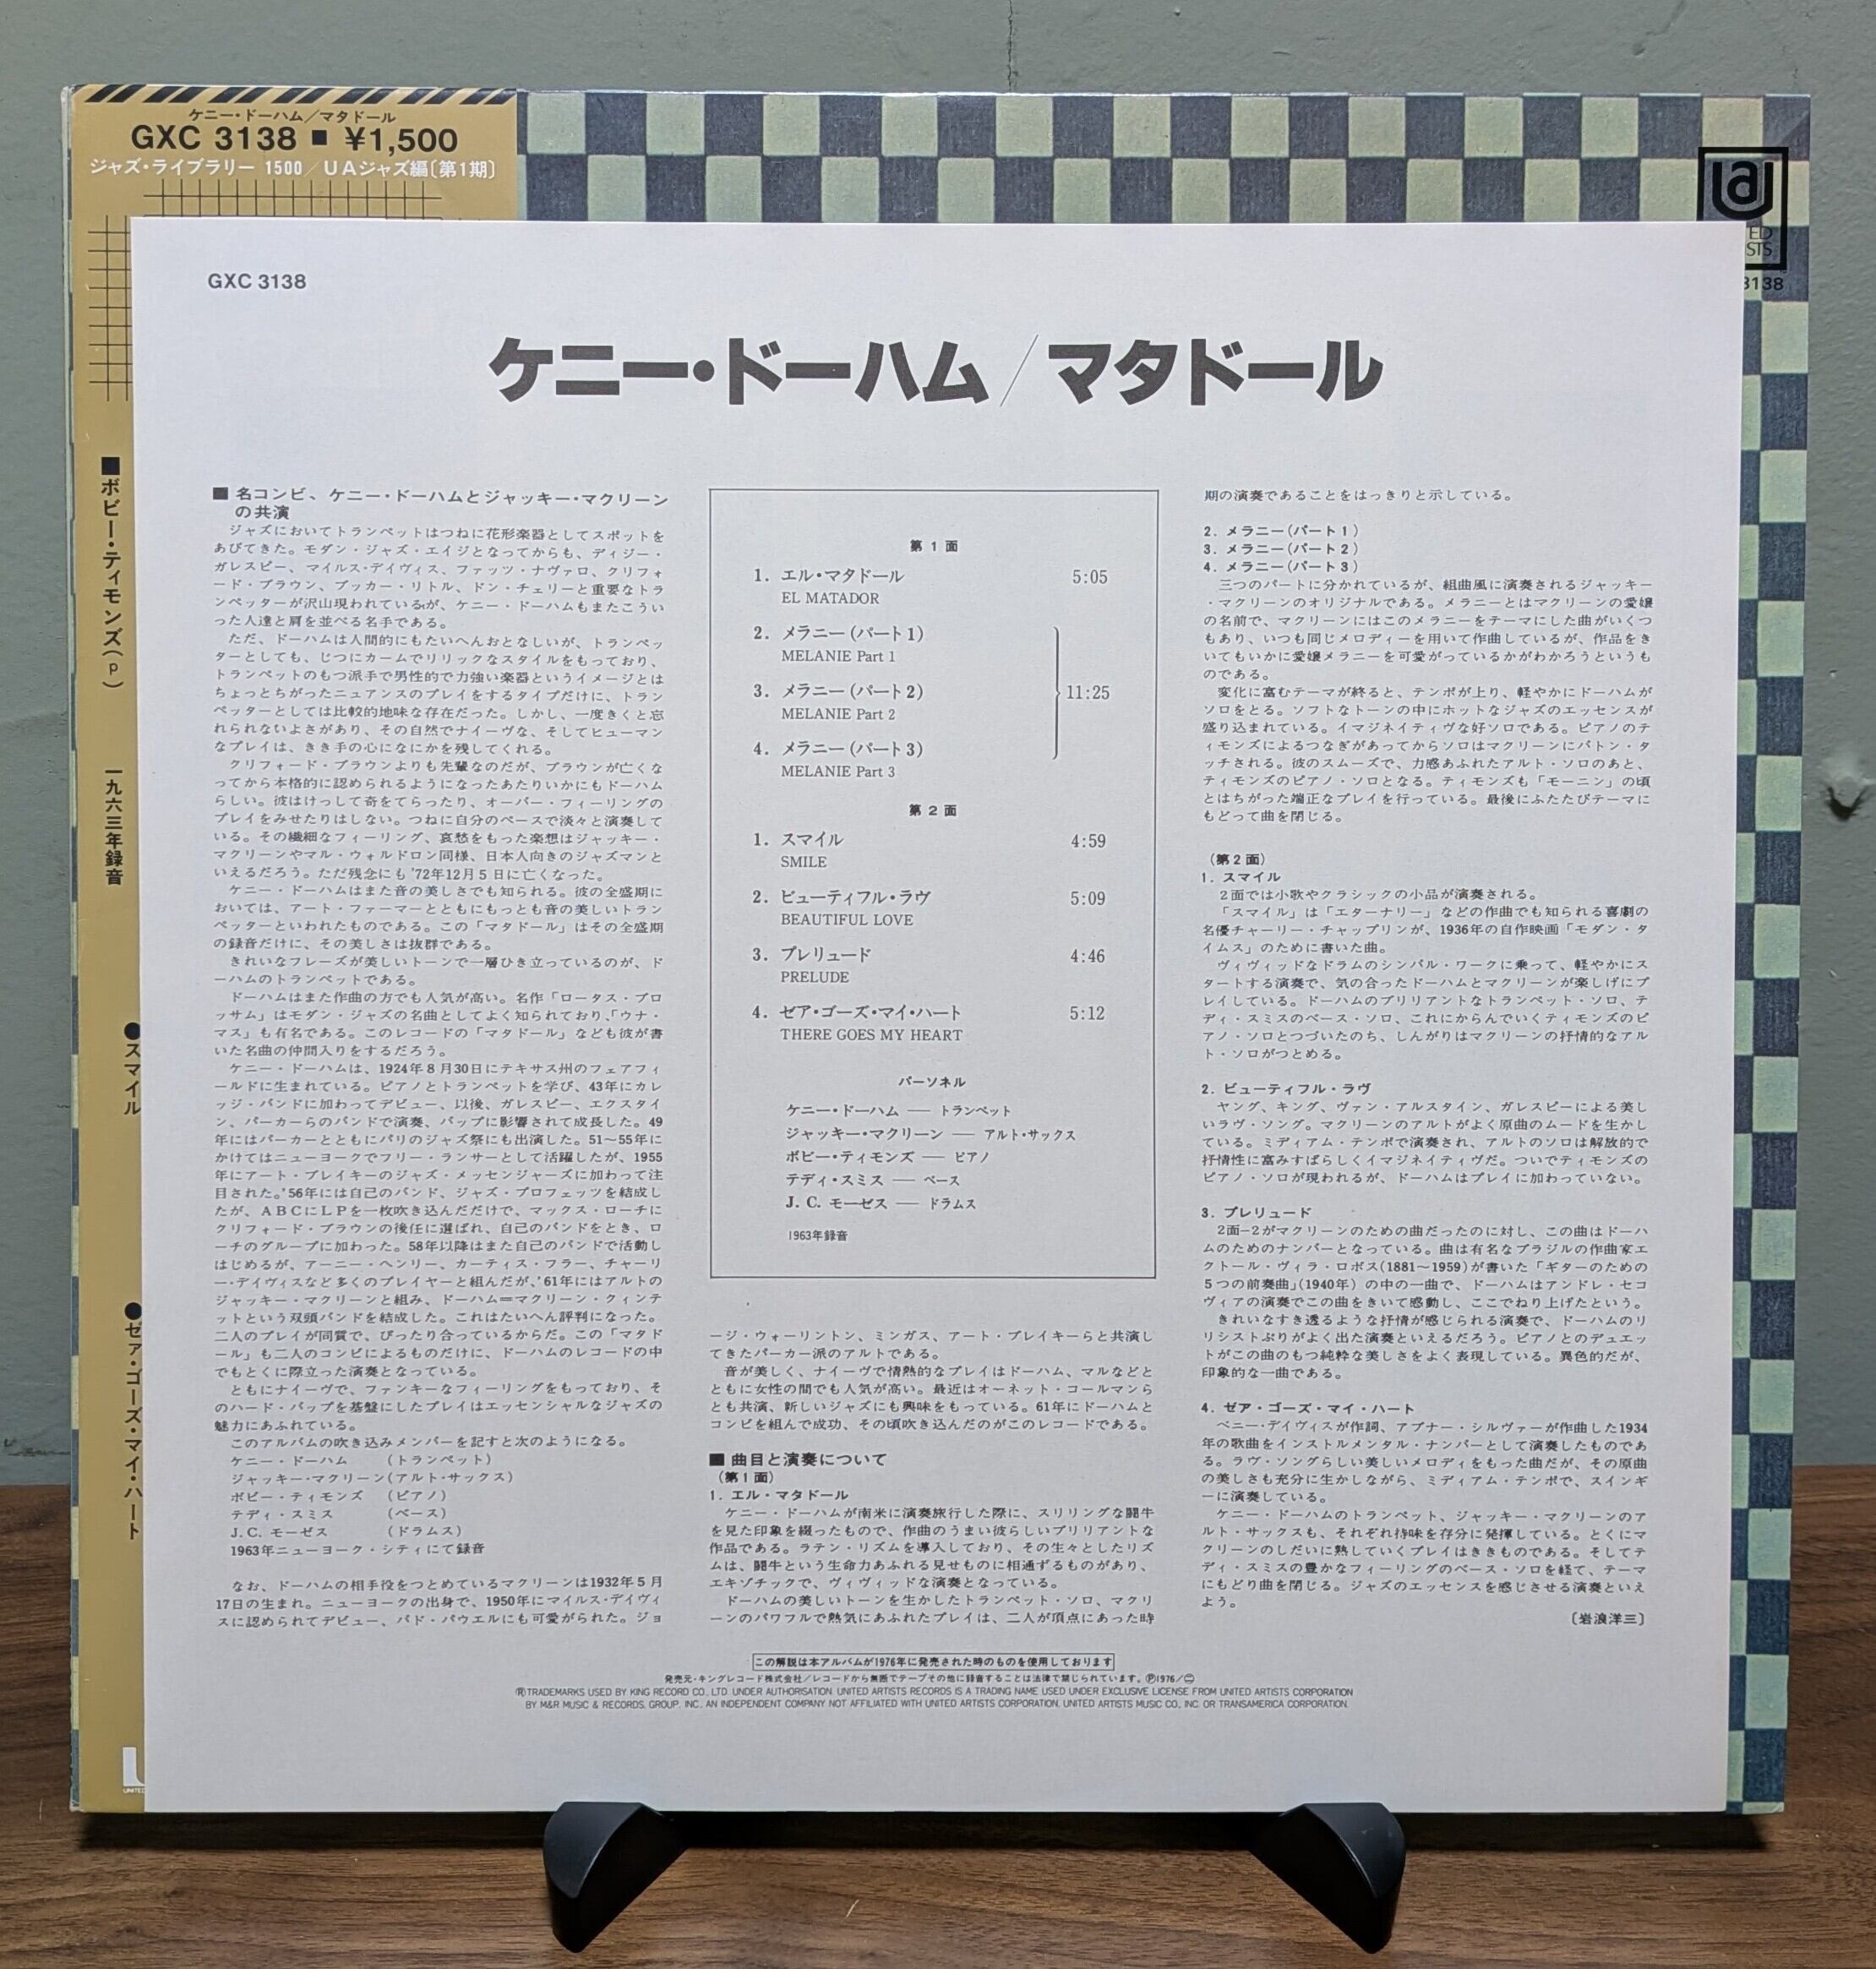 ケニー・ドーハム／マタドール
GXC 3138 ■ ¥1,500
ジャズ・ライブラリー 1500／UAジャズ編〔第1期〕
ED
STS
3138
■ボビー・ティモンズ(p)
一九六三年録音
●スマイル
●ゼア・ゴーズ・マイ・ハート
UNITED
GXC 3138
ケニー・ドーハム／マタドール
■ 名コンビ、ケニー・ドーハムとジャッキー・マクリーン
の共演
ジャズにおいてトランペットはつねに花形楽器としてスポットを
あびてきた。モダン・ジャズ・エイジとなってからも、ディジー・
ガレスピー、マイルス・デイヴィス、ファッツ・ナヴァロ、クリフォ
ード・ブラウン、ブッカー・リトル、ドン・チェリーと重要なトラ
ンペッターが沢山現われているが、ケニー・ドーハムもまたこうい
った人達と肩を並べる名手である。
ただ、ドーハムは人間的にもたいへんおとなしいが、トランペッ
ターとしても、じつにカームでリリックなスタイルをもっており、
トランペットのもつ派手で男性的で力強い楽器というイメージとは
ちょっとちがったニュアンスのプレイをするタイプだけに、トラン
ペッターとしては比較的地味な存在だった。しかし、一度きくと忘
れられないよさがあり、その自然でナイーヴな、そしてヒューマン
なプレイは、きき手の心になにかを残してくれる。
クリフォード・ブラウンよりも先輩なのだが、ブラウンが亡くな
ってから本格的に認められるようになったあたりいかにもドーハム
らしい。彼はけっして奇をてらったり、オーバー・フィーリングの
プレイをみせたりはしない。つねに自分のペースで淡々と演奏して
いる。その繊細なフィーリング、哀愁をもった楽想はジャッキー・
マクリーンやマル・ウォルドロン同様、日本人向きのジャズマンと
いえるだろう。ただ残念にも'72年12月5日に亡くなった。
ケニー・ドーハムはまた音の美しさでも知られる。彼の全盛期に
おいては、アート・ファーマーとともにもっとも音の美しいトラン
ペッターといわれたものである。この「マタドール」はその全盛期
の録音だけに、その美しさは抜群である。
きれいなフレーズが美しいトーンで一層ひき立っているのが、ド
ーハムのトランペットである。
ドーハムはまた作曲の方でも人気が高い。名作「ロータス・ブロ
ッサム」はモダン・ジャズの名曲としてよく知られており、「ウナ・
マス」も有名である。このレコードの「マタドール」なども彼が書
いた名曲の仲間入りをするだろう。
ケニー・ドーハムは、1924年8月30日にテキサス州のフェアフィ
ールドに生まれている。ピアノとトランペットを学び、43年にカレ
ッジ・バンドに加わってデビュー、以後、ガレスピー、エクスタイ
ン、パーカーらのバンドで演奏、バップに影響されて成長した。49
年にはパーカーとともにパリのジャズ祭にも出演した。51〜55年に
かけてはニューヨークでフリー・ランサーとして活躍したが、1955
年にアート・ブレイキーのジャズ・メッセンジャーズに加わって注
目された。'56年には自己のバンド、ジャズ・プロフェッツを結成し
たが、ABCにLPを一枚吹き込んだだけで、マックス・ローチに
クリフォード・ブラウンの後任に選ばれ、自己のバンドをとき、ロ
ーチのグループに加わった。58年以降はまた自己のバンドで活動し
はじめるが、アーニー・ヘンリー、カーティス・フラー、チャーリ
ー・デイヴィスなど多くのプレイヤーと組んだが、'61年にはアルトの
ジャッキー・マクリーンと組み、ドーハム＝マクリーン・クィンテ
ットという双頭バンドを結成した。これはたいへん評判になった。
二人のプレイが同質で、ぴったり合っているからだ。この「マタド
ール」も二人のコンビによるものだけに、ドーハムのレコードの中
でもとくに際立った演奏となっている。
ともにナイーヴで、ファンキーなフィーリングをもっており、そ
のハード・バップを基盤にしたプレイはエッセンシャルなジャズの
魅力にあふれている。
このアルバムの吹き込みメンバーを記すと次のようになる。
ケニー・ドーハム （トランペット）
ジャッキー・マクリーン（アルト・サックス）
ボビー・ティモンズ （ピアノ）
テディ・スミス （ベース）
J.C. モーゼス （ドラムス）
1963年ニューヨーク・シティにて録音
なお、ドーハムの相手役をつとめているマクリーンは1932年5月
17日の生まれ。ニューヨークの出身で、1950年にマイルス・デイヴィ
スに認められてデビュー、バド・パウエルにも可愛がられた。ジョ
第1面
1. エル・マタドール 5:05
EL MATADOR
2. メラニー（パート1）
MELANIE Part 1
3. メラニー（パート2） 11:25
MELANIE Part 2
4. メラニー（パート3）
MELANIE Part 3
第2面
1. スマイル 4:59
SMILE
2. ビューティフル・ラヴ 5:09
BEAUTIFUL LOVE
3. プレリュード 4:46
PRELUDE
4. ゼア・ゴーズ・マイ・ハート 5:12
THERE GOES MY HEART
パーソネル
ケニー・ドーハム ── トランペット
ジャッキー・マクリーン ── アルト・サックス
ボビー・ティモンズ ── ピアノ
テディ・スミス ── ベース
J. C. モーゼス ── ドラムス
1963年録音
ージ・ウォーリントン、ミンガス、アート・ブレイキーらと共演し
てきたパーカー派のアルトである。
音が美しく、ナイーヴで情熱的なプレイはドーハム、マルなどと
ともに女性の間でも人気が高い。最近はオーネット・コールマンら
とも共演、新しいジャズにも興味をもっている。61年にドーハムと
コンビを組んで成功、その頃吹き込んだのがこのレコードである。
■ 曲目と演奏について
（第1面）
1. エル・マタドール
ケニー・ドーハムが南米に演奏旅行した際に、スリリングな闘牛
を見た印象を綴ったもので、作曲のうまい彼らしいブリリアントな
作品である。ラテン・リズムを導入しており、その生々としたリズ
ムは、闘牛という生命力あふれる見せものに相通ずるものがあり、
エキゾチックで、ヴィヴィッドな演奏となっている。
ドーハムの美しいトーンを生かしたトランペット・ソロ、マクリ
ーンのパワフルで熱気にあふれたプレイは、二人が頂点にあった時
期の演奏であることをはっきりと示している。
2. メラニー（パート1）
3. メラニー（パート2）
4. メラニー（パート3）
三つのパートに分かれているが、組曲風に演奏されるジャッキー
・マクリーンのオリジナルである。メラニーとはマクリーンの愛嬢
の名前で、マクリーンにはこのメラニーをテーマにした曲がいくつ
もあり、いつも同じメロディーを用いて作曲しているが、作品をき
いてもいかに愛嬢メラニーを可愛がっているかがわかろうというも
のである。
変化に富むテーマが終ると、テンポが上り、軽やかにドーハムが
ソロをとる。ソフトなトーンの中にホットなジャズのエッセンスが
盛り込まれている。イマジネイティヴな好ソロである。ピアノのテ
ィモンズによるつなぎがあってからソロはマクリーンにバトン・タ
ッチされる。彼のスムーズで、力感あふれたアルト・ソロのあと、
ティモンズのピアノ・ソロとなる。ティモンズも「モーニン」の頃
とはちがった端正なプレイを行っている。最後にふたたびテーマに
もどって曲を閉じる。
（第2面）
1. スマイル
2面では小歌やクラシックの小品が演奏される。
「スマイル」は「エターナリー」などの作曲でも知られる喜劇の
名優チャーリー・チャップリンが、1936年の自作映画「モダン・タ
イムス」のために書いた曲。
ヴィヴィッドなドラムのシンバル・ワークに乗って、軽やかにス
タートする演奏で、気の合ったドーハムとマクリーンが楽しげにプ
レイしている。ドーハムのブリリアントなトランペット・ソロ、テ
ディ・スミスのベース・ソロ、これにからんでいくティモンズのピ
アノ・ソロとつづいたのち、しんがりはマクリーンの抒情的なアル
ト・ソロがつとめる。
2. ビューティフル・ラヴ
ヤング、キング、ヴァン・アルスタイン、ガレスピーによる美し
いラヴ・ソング。マクリーンのアルトがよく原曲のムードを生かし
ている。ミディアム・テンポで演奏され、アルトのソロは解放的で
抒情性に富みすばらしくイマジネイティヴだ。ついでティモンズの
ピアノ・ソロが現われるが、ドーハムはプレイに加わっていない。
3. プレリュード
2面−2がマクリーンのための曲だったのに対し、この曲はドーハ
ムのためのナンバーとなっている。曲は有名なブラジルの作曲家エ
クトール・ヴィラ・ロボス(1881〜1959)が書いた「ギターのための
5つの前奏曲」(1940年) の中の一曲で、ドーハムはアンドレ・セコ
ヴィアの演奏でこの曲をきいて感動し、ここでねり上げたという。
きれいなすき透るような抒情が感じられる演奏で、ドーハムのリ
リシストぶりがよく出た演奏といえるだろう。ピアノとのデュエッ
トがこの曲のもつ純粋な美しさをよく表現している。異色的だが、
印象的な一曲である。
4. ゼア・ゴーズ・マイ・ハート
ベニー・デイヴィスが作詞、アブナー・シルヴァーが作曲した1934
年の歌曲をインストルメンタル・ナンバーとして演奏したものであ
る。ラヴ・ソングらしい美しいメロディをもった曲だが、その原曲
の美しさも充分に生かしながら、ミディアム・テンポで、スインギ
ーに演奏している。
ケニー・ドーハムのトランペット、ジャッキー・マクリーンのア
ルト・サックスも、それぞれ持味を存分に発揮している。とくにマ
クリーンのしだいに熟していくプレイはききものである。そしてテ
ディ・スミスの豊かなフィーリングのベース・ソロを経て、テーマ
にもどり曲を閉じる。ジャズのエッセンスを感じさせる演奏といえ
よう。
〔岩浪洋三〕
この解説は本アルバムが1976年に発売された時のものを使用しております
発売元・キングレコード株式会社／レコードから無断でテープその他に録音することは法律で禁じられています。Ⓟ1976/
ⓇTRADEMARKS USED BY KING RECORD CO., LTD. UNDER AUTHORISATION. UNITED ARTISTS RECORDS IS A TRADING NAME USED UNDER EXCLUSIVE LICENSE FROM UNITED ARTISTS CORPORATION
BY M&R MUSIC & RECORDS, GROUP, INC. AN INDEPENDENT COMPANY NOT AFFILIATED WITH UNITED ARTISTS CORPORATION, UNITED ARTISTS MUSIC CO., INC. OR TRANSAMERICA CORPORATION.